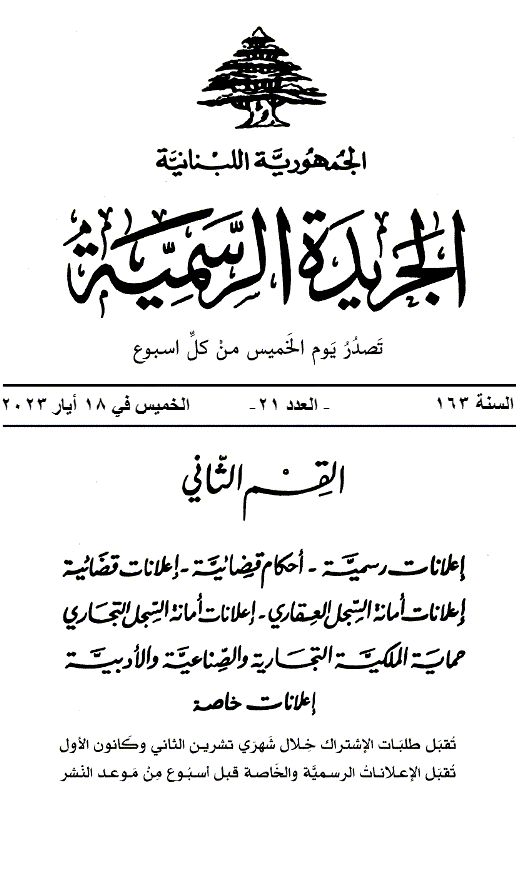 الجمهورية اللبنانية
الجريدة الرسمية
تَصدُرُ يَوم الخَميس منْ كلِّ اسبوع
السنة ١٦٣ - العدد ٢١- الخميس في ١٨ أيار ٢٠٢٣
القِسْم الثّاني
إعلانات رسميَّة - أحكام قضائيَّة - إعلانات قضائية
إعلانات أمانة السّجل العقاري - إعلانات أمانة السّجل التجاري
حماية الملكيَّة التجارية والصِّناعيَّة والأدبيَّة
إعلانات خاصة
تُقبَل طلبَات الإشتراك خِلال شَهرَي تشرين الثاني وكَانون الأول
تُقبَل الإعلاناتُ الرسميَّة والخَاصة قبل أسبُوع مِنْ مَوعد النّشر